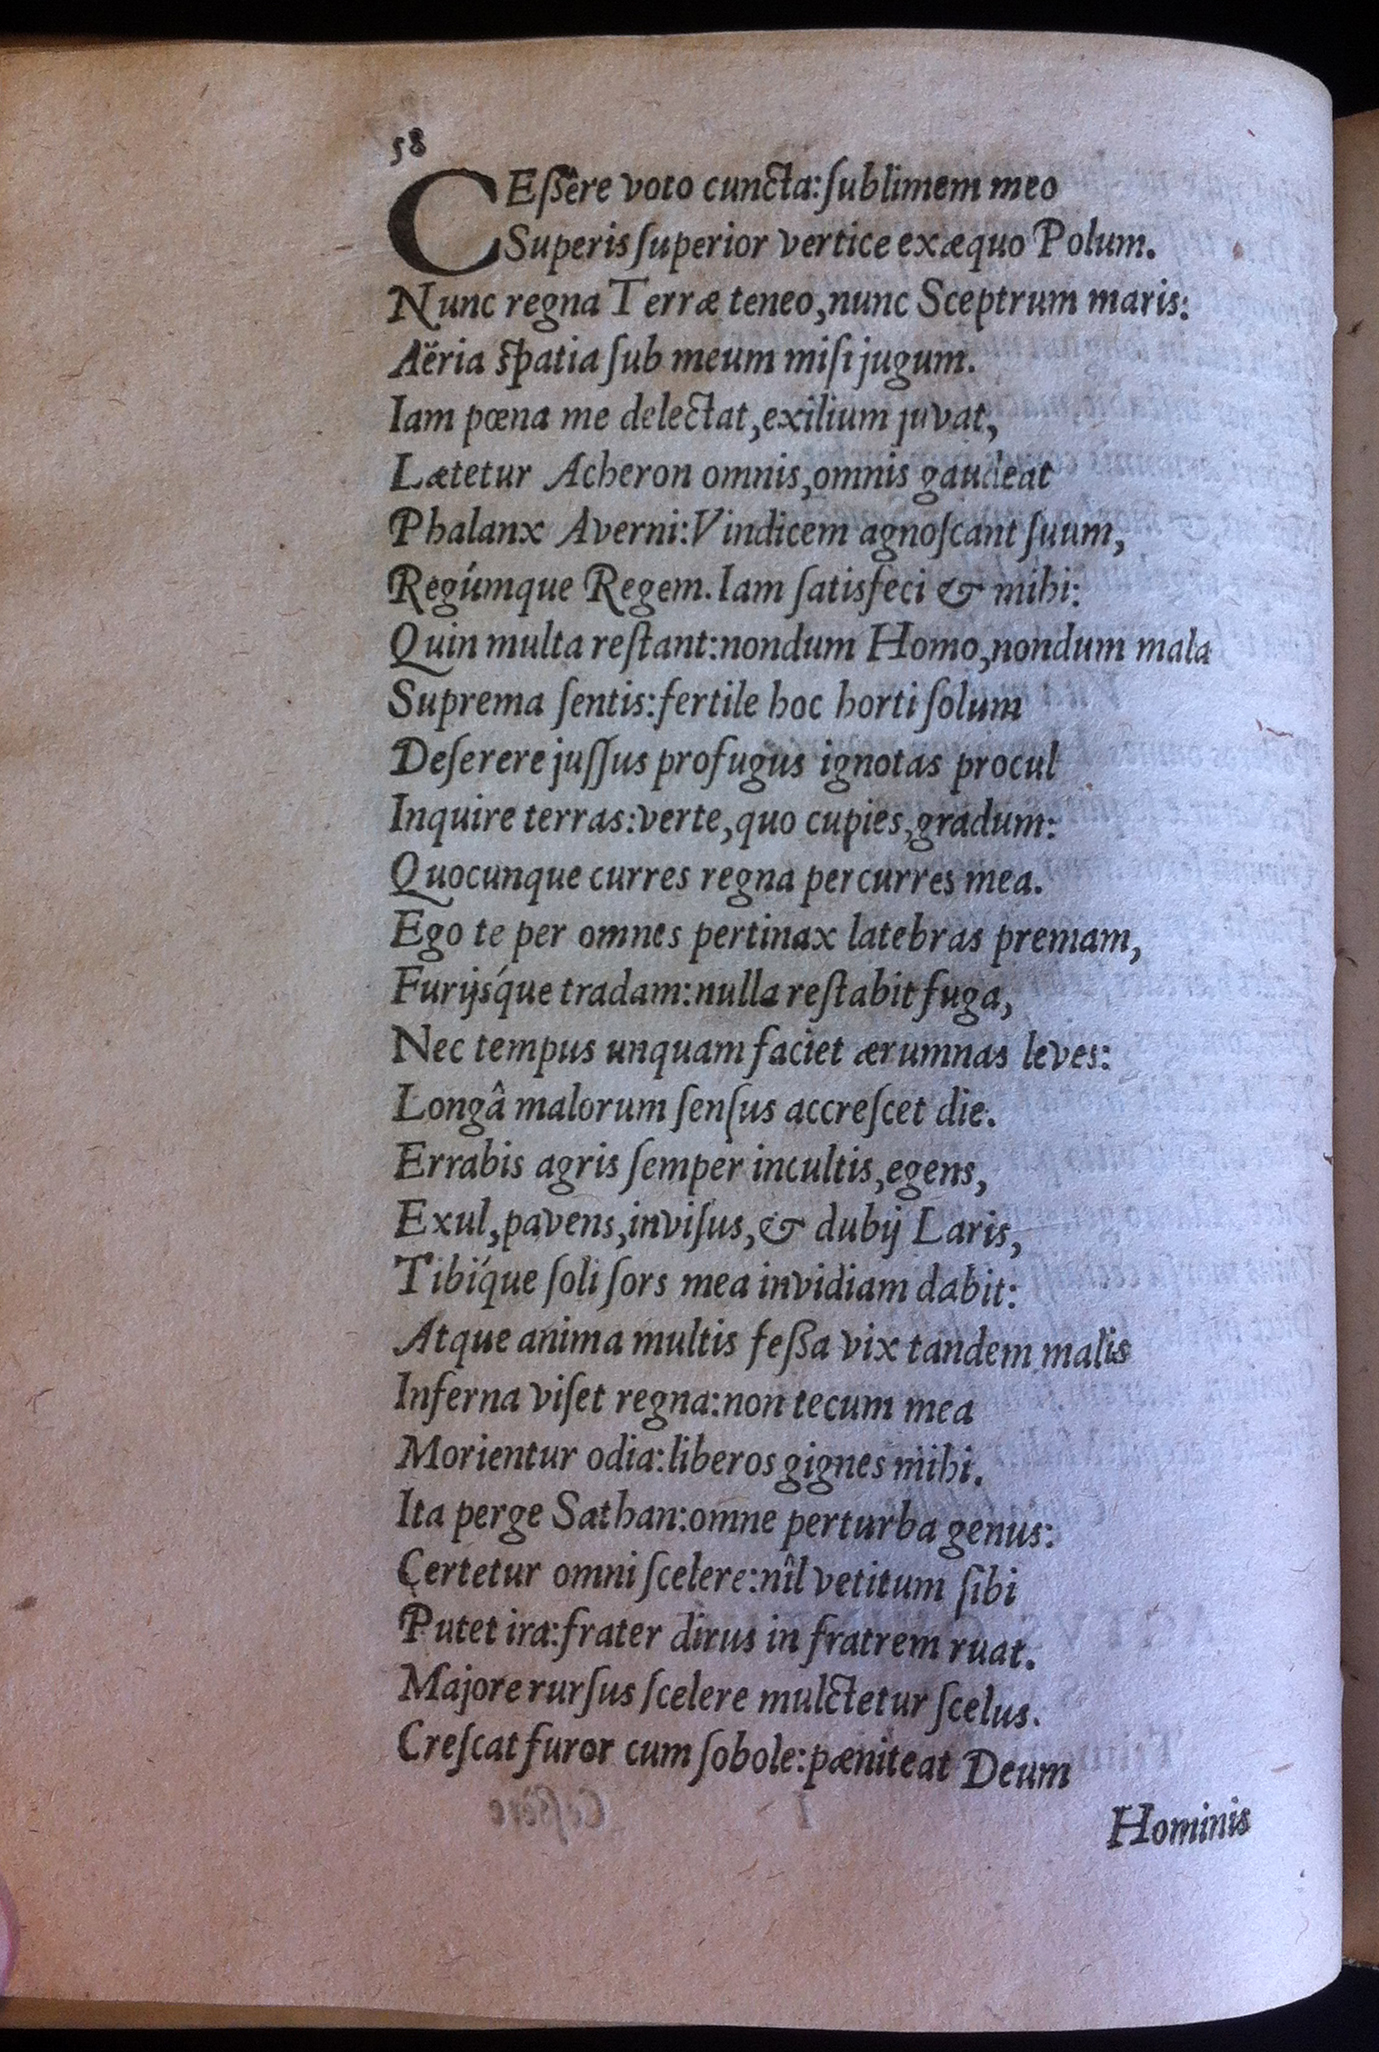 58
CEſſêre voto cuncta:ſublimem meo
Superis ſuperior vertice exæquo Polum.
Nunc regna Terræ teneo,nunc Sceptrum maris:
Aëria ſpatia ſub meum miſi jugum.
Iam pœna me delectat,exilium juvat,
Lætetur Acheron omnis,omnis gaudeat
Phalanx Averni:Vindicem agnoſcant ſuum,
Regúmque Regem. Iam ſatisfeci & mihi:
Quin multa reſtant:nondum Homo,nondum mala
Suprema ſentis:fertile hoc horti ſolum
Deſerere juſſus profugus ignotas procul
Inquire terras:verte,quo cupies,gradum:
Quocunque curres regna percurres mea.
Ego te per omnes pertinax latebras premam,
Furijsq́ue tradam:nulla reſtabit fuga,
Nec tempus unquam faciet ærumnas leves:
Longâ malorum ſenſus accreſcet die.
Errabis agris ſemper incultis,egens,
Exul,pavens,inviſus,& dubij Laris,
Tibíque ſoli ſors mea invidiam dabit:
Atque anima multis feſſa vix tandem malis
Inferna viſet regna:non tecum mea
Morientur odia:liberos gignes mihi.
Ita perge Sathan:omne perturba genus:
Certetur omni ſcelere:nîl vetitum ſibi
Putet ira:frater dirus in fratrem ruat.
Majore rurſus ſcelere mulctetur ſcelus.
Creſcat furor cum ſobole:pæniteat Deum
Hominis